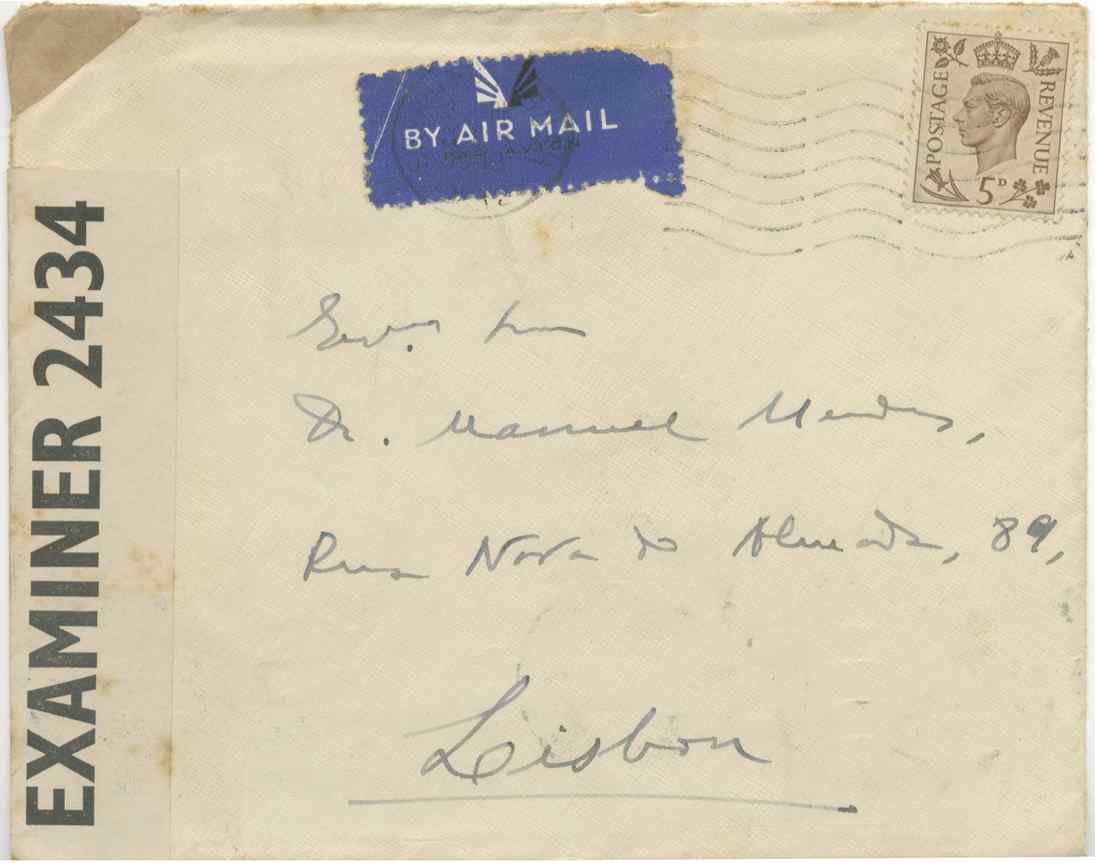 BY AIR MAIL
PAR AVION
POSTAGE REVENUE
5D
EXAMINER 2434
Dr. Manuel Mendes,
Rua Nova do Almada, 89,
Lisbon